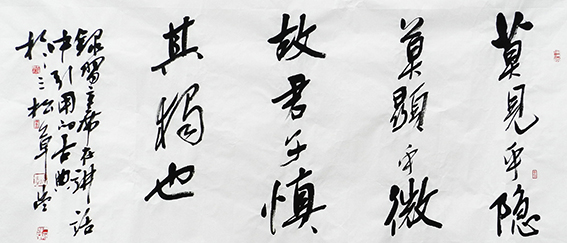 莫見乎隐
莫顯乎微
故君子慎
其獨也
録習主席在讲話
中引用的古典
於三松草堂